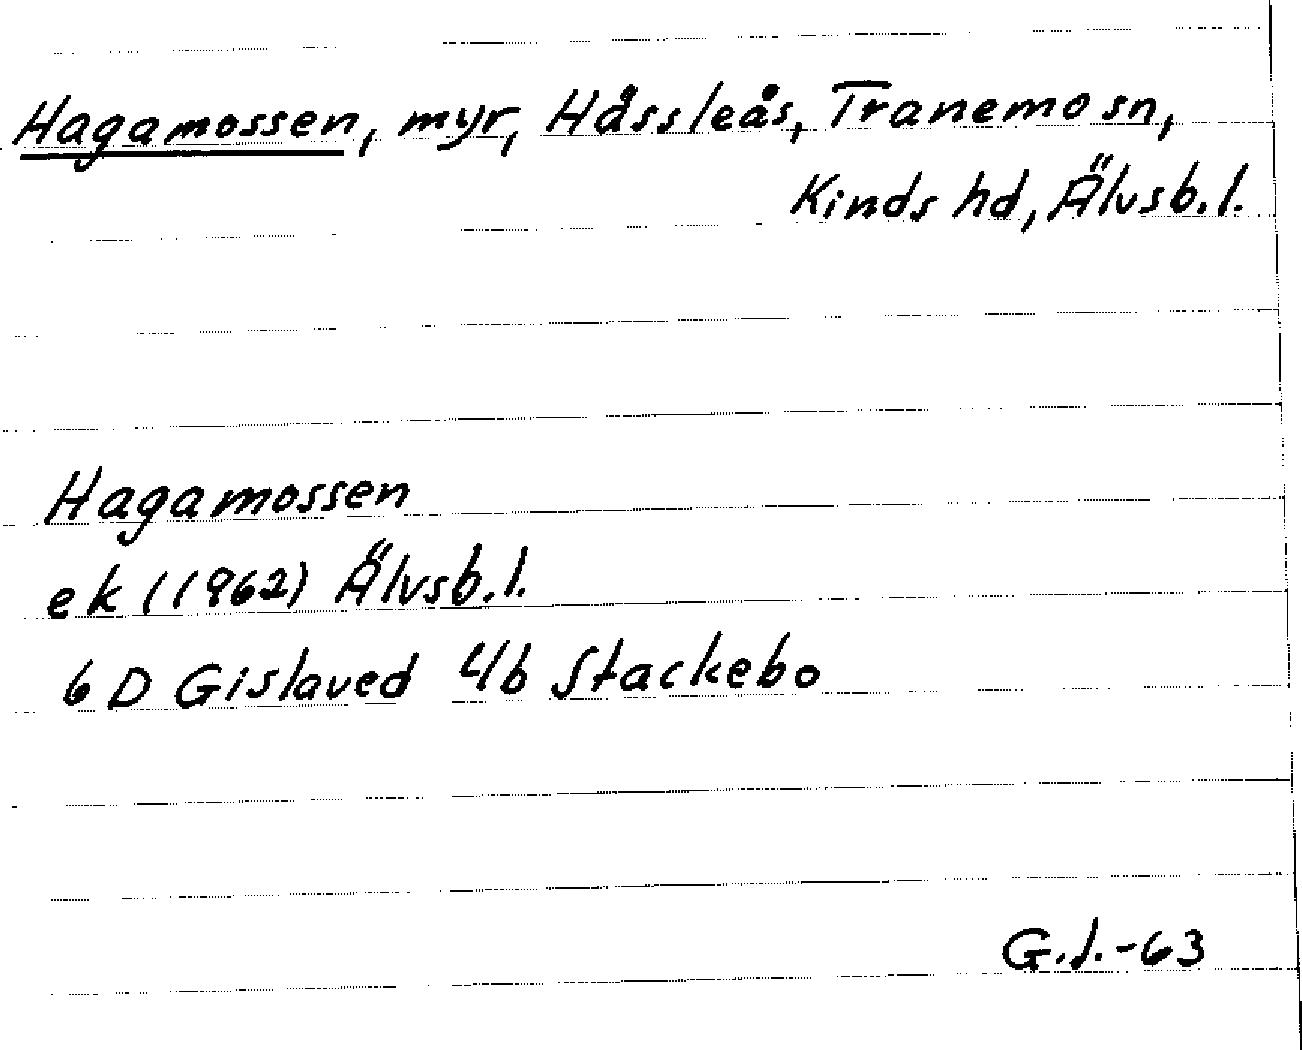 Hagamossen, myr, Håssleås, Tranemo sn,
Kinds hd, Älvsb. l.
Hagamossen
ek (1962) Älvsb. l.
6 D Gislaved 4b Stackebo
G.J.-63